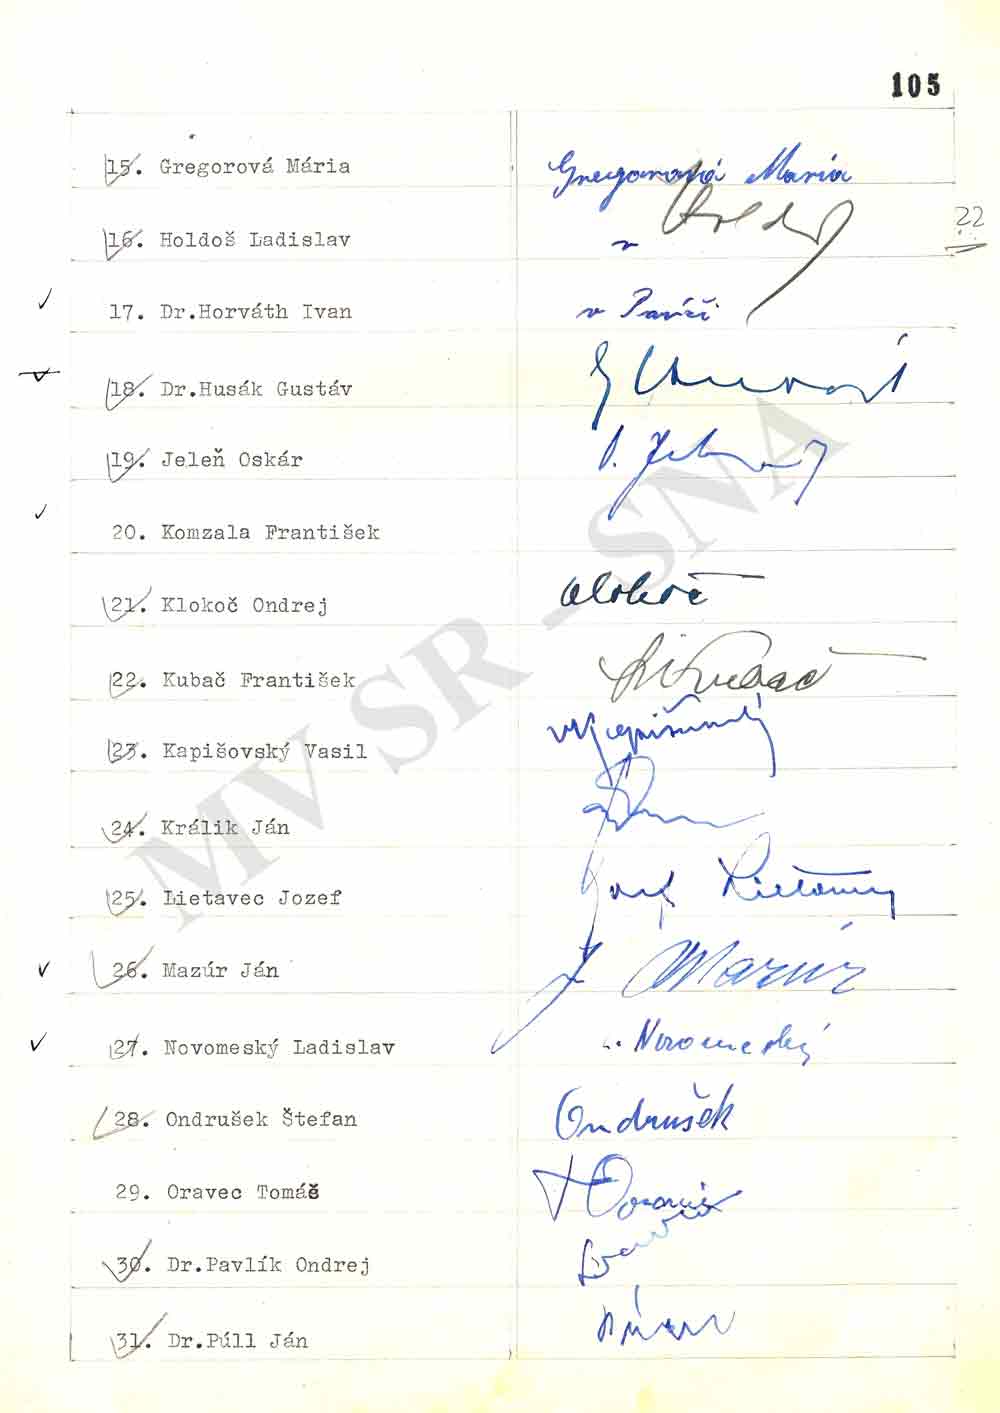 105
15. Gregorová Mária Gregorová Mária
16. Holdoš Ladislav Holdoš
22
17. Dr.Horváth Ivan v Paríži
18. Dr.Husák Gustáv
19. Jeleň Oskár
20. Komzala František
21. Klokoč Ondrej Klokoč
22. Kubač František Kubač
23. Kapišovský Vasil Kapišovský
24. Králik Ján
25. Lietavec Jozef Jozef Lietavec
26. Mazúr Ján J Mazúr
27. Novomeský Ladislav Novomeský
28. Ondrušek Štefan Ondrušek
29. Oravec Tomáš T Oravec
30. Dr.Pavlík Ondrej
31. Dr.Púll Ján
MV SR - SNA